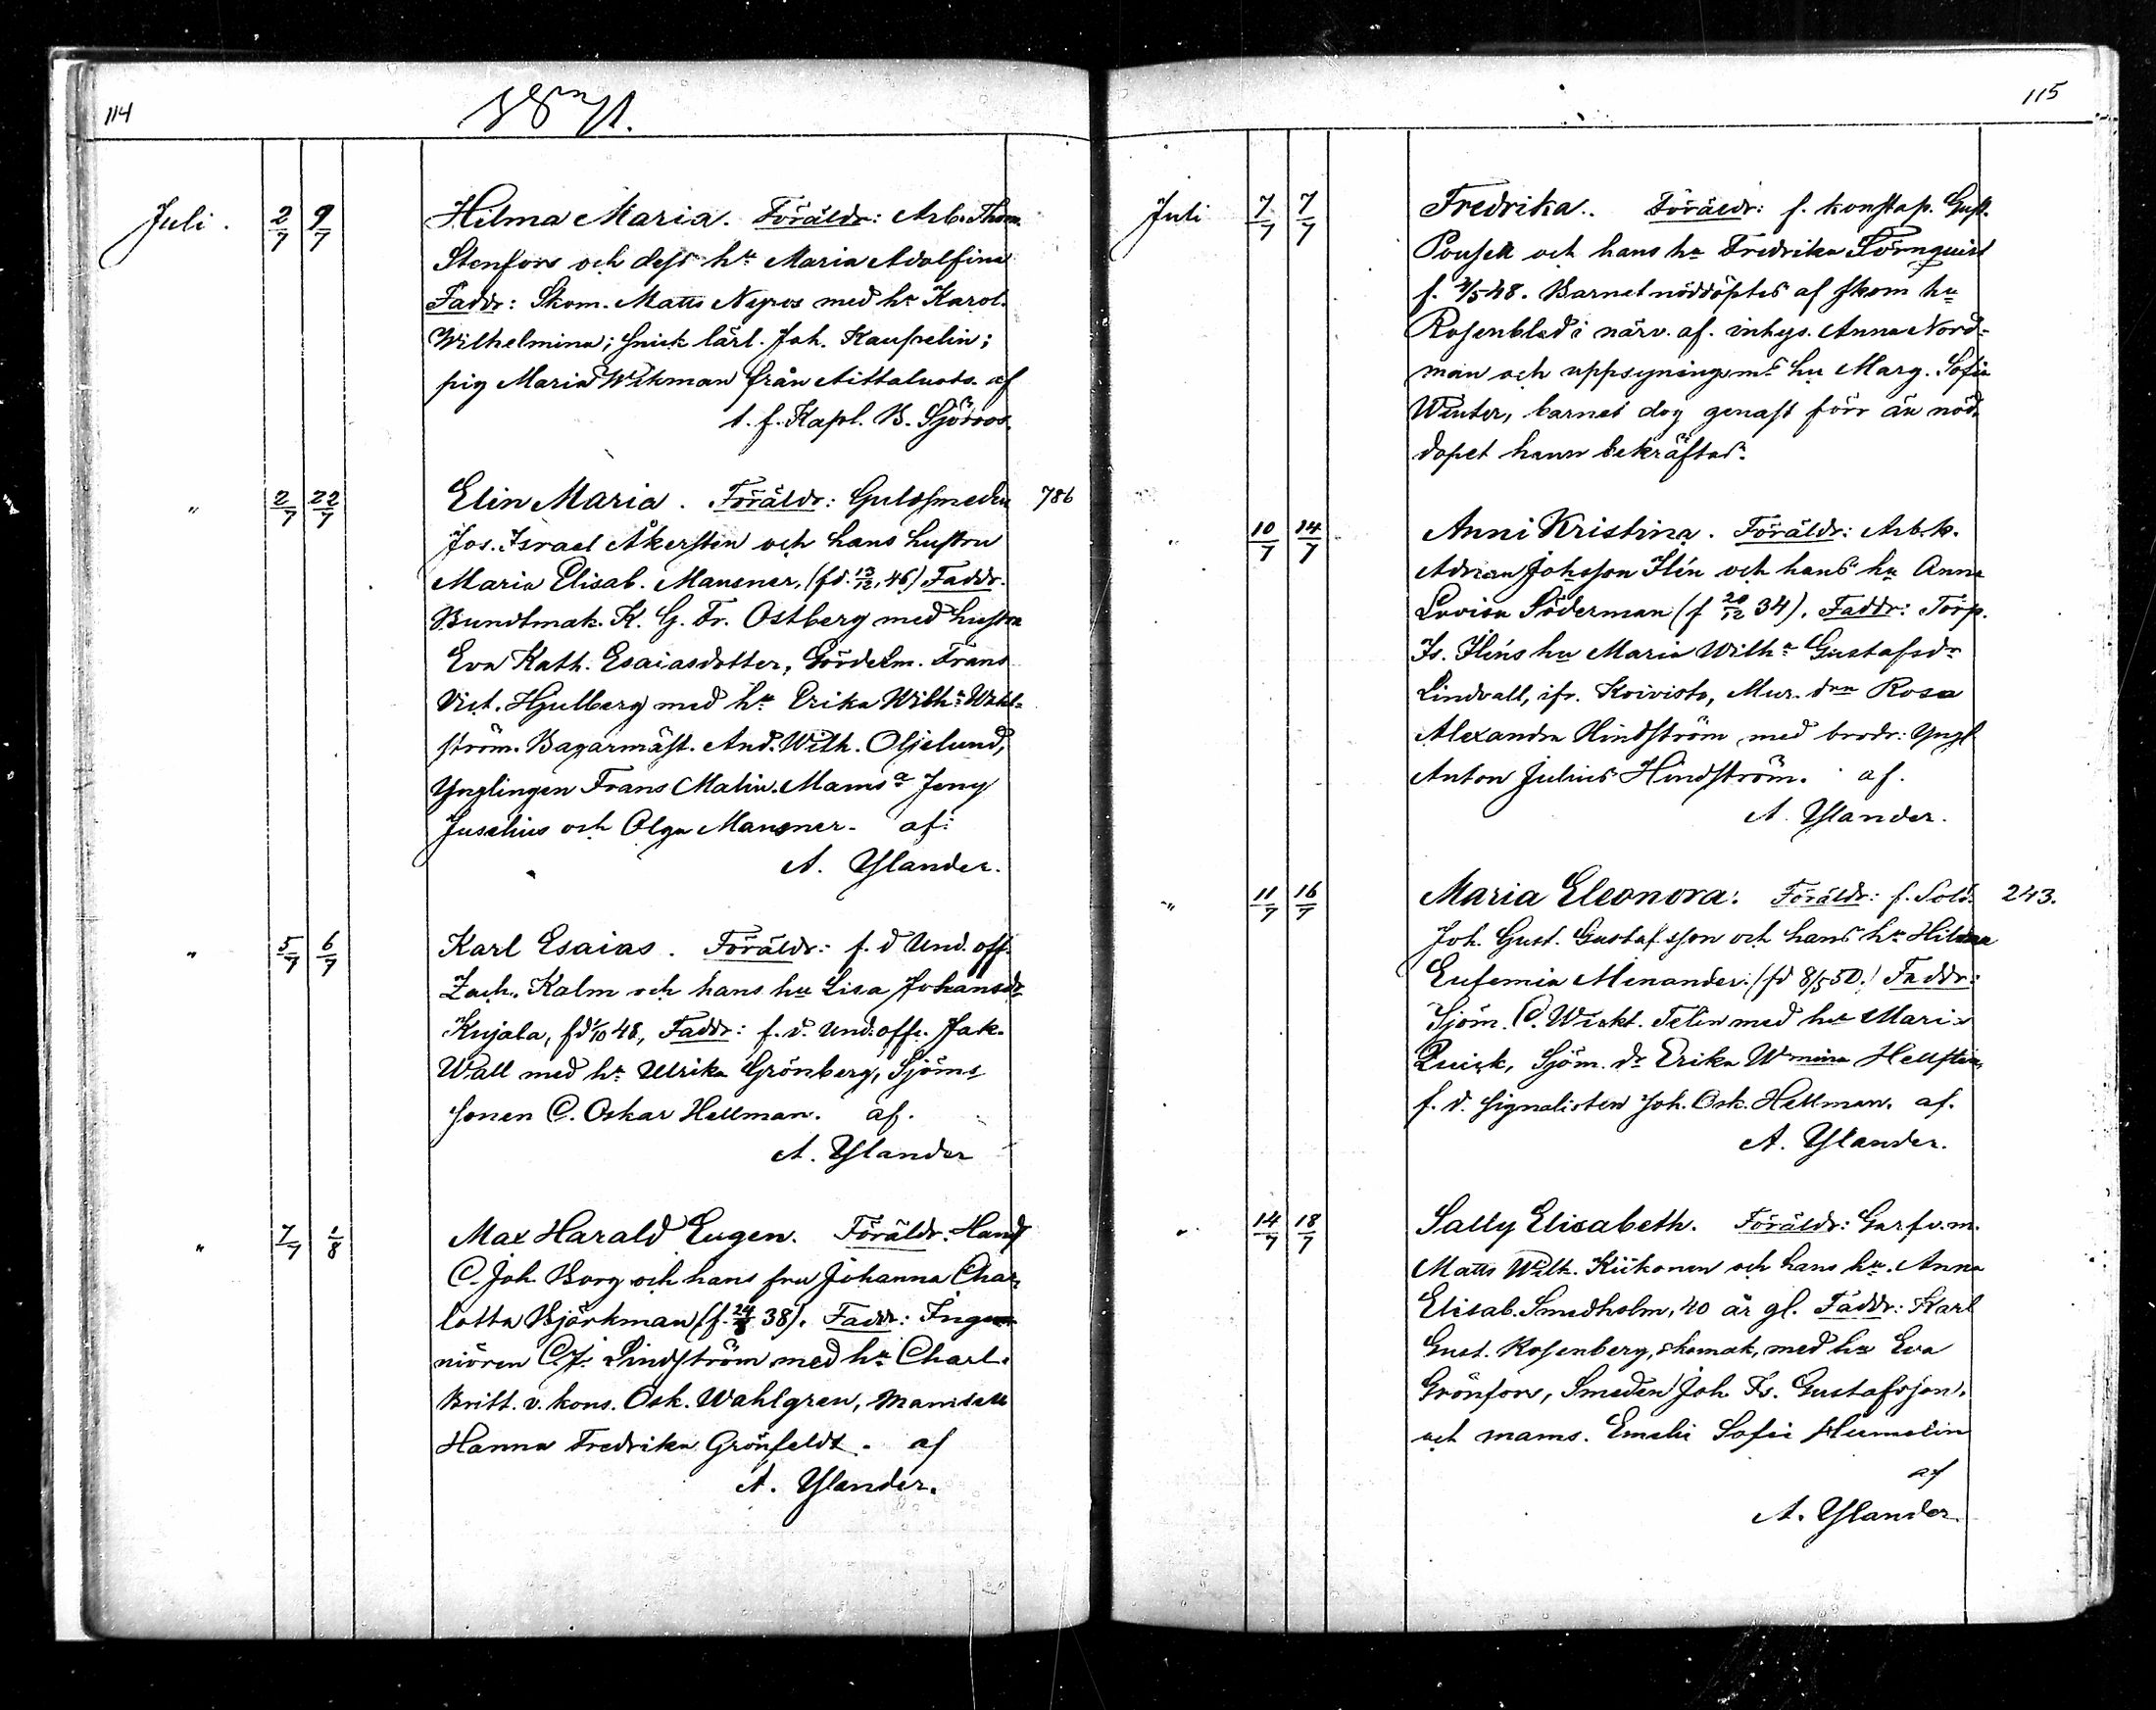 114
1871.
Juli. 2/7 9/7 Hilma Maria. Föräldr: Arb. Thom.
Stenfors och dess hu Maria Adolfina
Faddr: Skom. Matts Nyroos med hu Karol.
Wilhelmina; snick lärl. Joh.
pig Maria Wikman från Aittaluoto. af
t. f. Kapl. B. Sjöroos.
" 2/7 22/7 Elin Maria. Föräldr: Guldsmeden 786
Jos. Israel Åkersten och hans hustru
Maria Elisab. Mansner, (fd. 13/12, 46) Faddr.
Bundtmak. K. G. Fr. Ostberg med hustru
Eva Kath. Esaiasdotter, Gördelm. Frans
Vict. Hjulberg med hu Erika Wilh:a Wahl-
ström. Bagarmäst. And. Wilh. Oljelund,
Ynglingen Frans Malin. Mams:a Jeny
Juselius och Olga Mansner. af:
A. Ylander.
" 5/7 6/7 Karl Esaias. Föräldr: f. d Und. off.
Zach. Kalm och hans hu Lisa Johansdr
Kujala, fd 1/10 48, Faddr: f. d. und. offr. Jak.
Wall med hu Ulrika Grönberg, Sjöms
sonen C. Oskar Hellman. af.
A. Ylander
" 7/7 1/8 Max Harald Eugen. Föräldr: Handl
C. Joh Borg och hans fru Johanna Char-
lotta Björkman (f. 24/8 38). Faddr: Inge-
niören C. J. Lindström med hu Charl.
Britt. v. kons. Osk. Wahlgren, Mamsell
Hanna Fredrika Grönfeldt. af
A. Ylander.
115
Juli 7/7 7/7 Fredrika. Föräldr: f. konstap. Gust.
Pousek och hans hu Fredrika Törnquist
f. 2/5 48. Barnet nöddöptes af skom hu
Rosenblad i närv. af. inhys. Anna Nord-
man och uppsyningsms hu Marg. Sofia
Winter, barnet dog genast förr än nöd-
dopet hann bekräftas.
" 10/7 14/7 Anni Kristina. Föräldr: Arb. k.
Adrian Johsson Ilén och hans hu Anna
Lovisa Söderman (f 20/12 34). Faddr: Torp.
Is. Iléns hu Maria Wilh:a Gustafsdr
Lindvall, ifr. Koivisto, Mur. drn Rosa
Alexandra Hindström med brodr: Yngl
Anton Julius Hindström. af.
A. Ylander.
" 11/7 16/7 Maria Eleonora. Föräldr: f. Sold. 243.
Joh. Gust. Gustafsson och hans hu Hilma
Eufemia Menander. (fd 8/5 50.) Faddr:
Sjöm. C. Wickt. Telén med hu Maria
Quick, Sjöm. dr Erika Wmina Hellsten,
f. d. signalisten Joh. Osk. Hellman. af.
A. Ylander.
" 14/7 18/7 Sally Elisabeth. Föräldr: Garfv. m.
Matts Wilh. Kiikonen och hans hu. Anna
Elisab. Smedholm, 40 år gl. Faddr: Karl
Gust. Rosenberg, skomak, med hu Eva
Grönfors, Smeden Joh Fs. Gustafsson,
och mams. Emelie Sofie Humelin
af
A. Ylander.